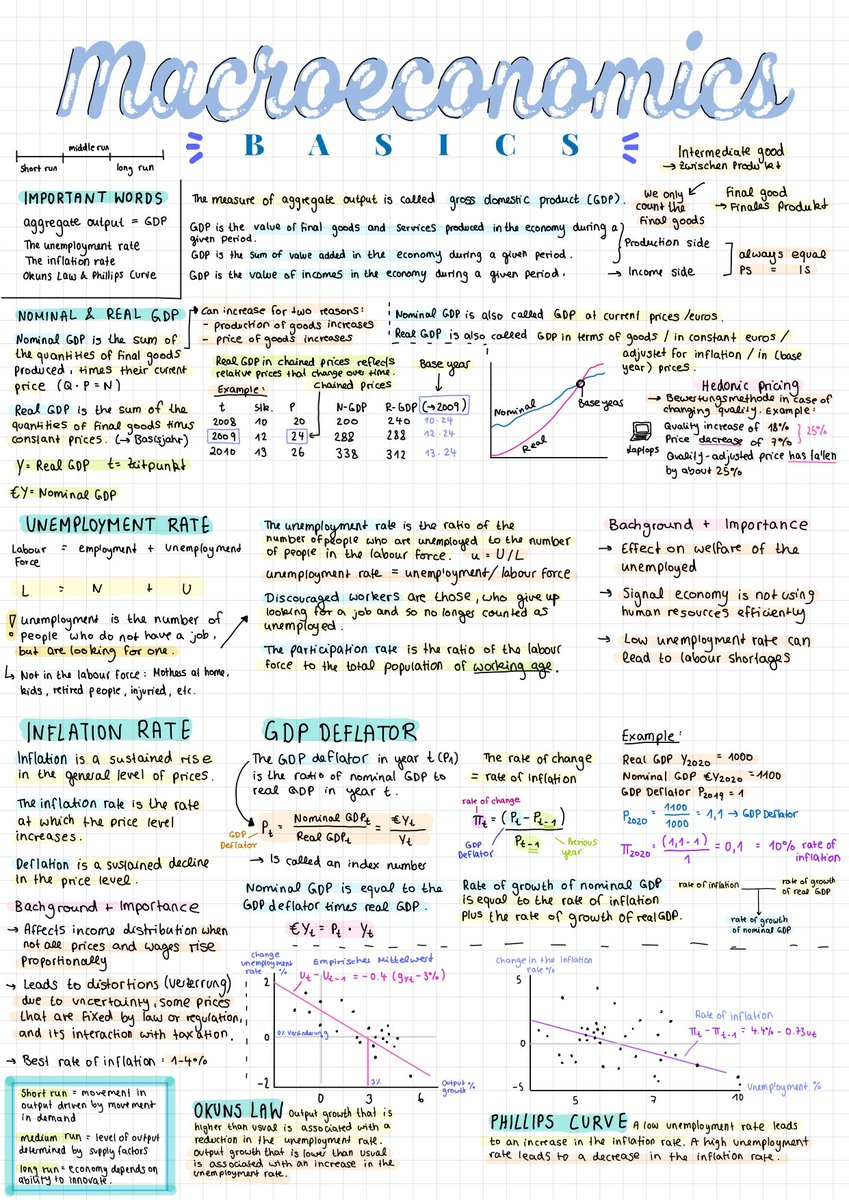 Macroeconomics
BASICS
middle run
short run
long run
Intermediate good
→ Zwischen Produkt
IMPORTANT WORDS
aggregate output = GDP
The unemployment rate
The inflation rate
Okuns Law & Phillips Curve
The measure of aggregate output is called gross domestic product (GDP).
We only
count the
final goods
Final good
→ Finales Produkt
GDP is the value of final goods and services produced in the economy during a
given period.
GDP is the sum of value added in the economy during a given period.
Production side
GDP is the value of incomes in the economy during a given period.
→ Income side
always equal
PS = IS
NOMINAL & REAL GDP
Nominal GDP is the sum of
the quantities of final goods
produced, times their current
price (Q · P = N)
Real GDP is the sum of the
quantities of final goods times
constant prices. (→ Basisjahr)
Y = Real GDP t = Zeitpunkt
€Y = Nominal GDP
Can increase for two reasons:
- production of goods increases
- price of goods increases
Nominal GDP is also called GDP at current prices/euros.
Real GDP is also called GDP in terms of goods / in constant euros /
adjustet for inflation / in (base
year) prices.
Real GDP in chained prices reflects
relative prices that change over time.
Example:
chained prices
Base year
t Stk. P N-GDP R-GDP (→2009)
2008 10 20 200 240 10·24
2009 12 24 288 288 12·24
2010 13 26 338 312 13·24
Nominal
Real
Base year
Hedonic Pricing
→ Bewertungsmethode in case of
changing quality. Example:
Laptops
Quality increase of 18%
Price decrease of 7%
25%
Quality-adjusted price has fallen
by about 25%
UNEMPLOYMENT RATE
Labour = employment + unemployment
Force
L = N + U
! unemployment is the number of
people who do not have a job,
but are looking for one.
↳ Not in the labour force: Mothers at home,
kids, retired people, injuried, etc.
The unemployment rate is the ratio of the
number of people who are unemployed to the number
of people in the labour force. u = U/L
unemployment rate = unemployment/labour force
Discouraged workers are those, who give up
looking for a job and so no longer counted as
unemployed.
The participation rate is the ratio of the labour
force to the total population of working age.
Background + Importance
→ Effect on welfare of the
unemployed
→ Signal economy is not using
human resources efficiently
→ Low unemployment rate can
lead to labour shortages
INFLATION RATE
Inflation is a sustained rise
in the general level of prices.
The inflation rate is the rate
at which the price level
increases.
Deflation is a sustained decline
in the price level.
Background + Importance
→ Affects income distribution when
not all prices and wages rise
proportionally
→ Leads to distortions (Verzerrung)
due to uncertainty, some prices
that are fixed by law or regulation,
and its interaction with taxation.
→ Best rate of inflation: 1-4%
GDP DEFLATOR
The GDP deflator in year t (Pt)
is the ratio of nominal GDP to
real GDP in year t.
GDP
Deflator
Pt = Nominal GDPt / Real GDPt = €Yt / Yt
→ Is called an index number
Nominal GDP is equal to the
GDP deflator times real GDP.
€Yt = Pt · Yt
The rate of change
= rate of inflation
rate of change
πt = (Pt - Pt-1) / Pt-1
GDP
Deflator
Previous
year
Rate of growth of nominal GDP
is equal to the rate of inflation
plus the rate of growth of real GDP.
Example:
Real GDP Y2020 = 1000
Nominal GDP €Y2020 = 1100
GDP Deflator P2019 = 1
P2020 = 1100/1000 = 1,1 → GDP Deflator
π2020 = (1,1-1)/1 = 0,1 = 10% rate of
inflation
rate of inflation
rate of growth
of real GDP
rate of growth
of nominal GDP
change
unemployment
rate %
Empirisches Mittelwert
Ut - Ut-1 = -0.4 (gyt - 3%)
2
1
0% Veränderung
0
-2
0 3 6
3%
Output %
growth
Change in the inflation
rate %
5
0
-5
Rate of inflation
πt - πt-1 = 4.4% - 0.73ut
5 7 10
Unemployment %
short run = movement in
output driven by movement
in demand
medium run = level of output
determined by supply factors
long run = economy depends on
ability to innovate.
OKUNS LAW Output growth that is
higher than usual is associated with a
reduction in the unemployment rate.
Output growth that is lower than usual
is associated with an increase in the
unemployment rate.
PHILLIPS CURVE A low unemployment rate leads
to an increase in the inflation rate. A high unemployment
rate leads to a decrease in the inflation rate.